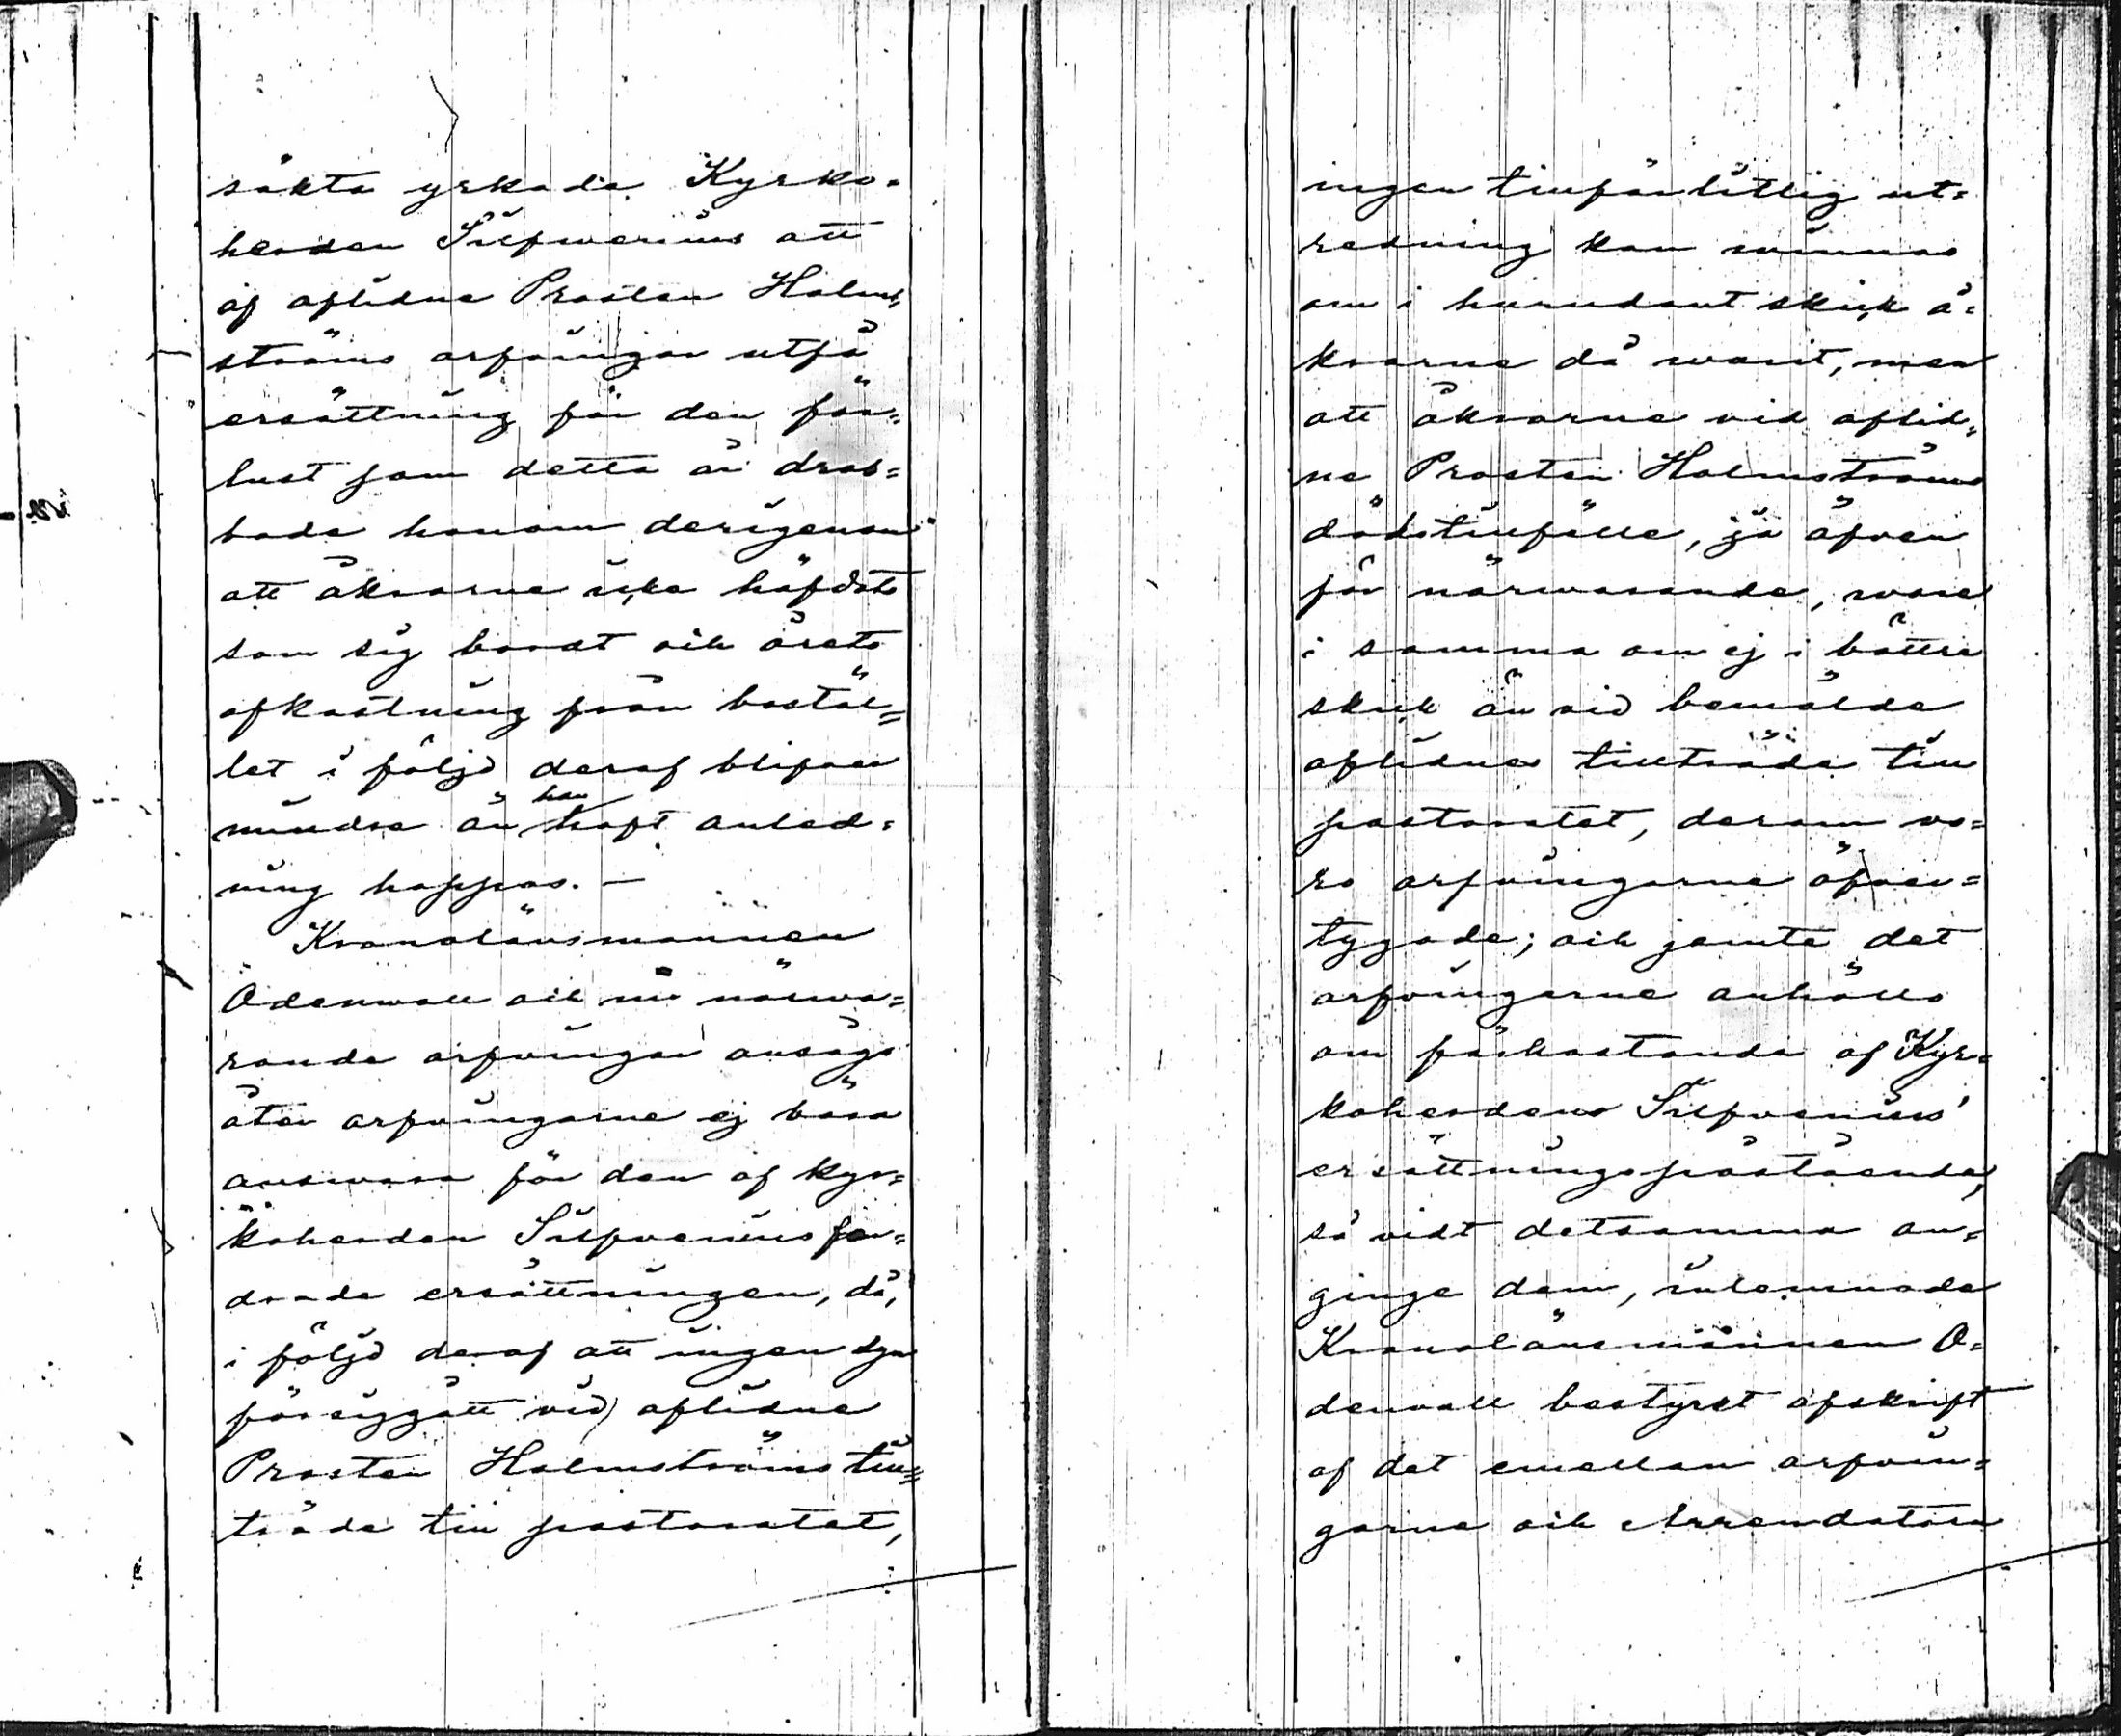 sökta yrkade Kyrko=
herden Silfwenius att
af aflidne Prosten Holm=
ströms arfvingar utfå
ersättning för den för=
lust som detta år drab=
bade honom derigenom
att åkrarne icke häfdats
som sig bordt och årets
afkastning från bostäl=
let i följd deraf blifvit
mindre än han haft anled=
ning hoppas. —
Kronolänsmannen
Ödenwall och nu närva=
rande arfvingar ansågo
åter arfvingarne ej böra
answara för den af kyr=
koherden Silfvenius for=
drade ersättningen, då,
i följd deraf att ingen syn
försiggått vid aflidne
Prosten Holmströms till=
träde till pastoratet,
ingen tillförlitlig ut=
redning kan vinnas
om i hurudant skick å=
krarne då warit, men
att åkrarne vid aflid=
ne Prosten Holmströms
dödstillfälle, ja äfven
för närwarande, wore
i samma om ej i bättre
skick än vid bemälde
aflidnes tillträde till
pastoratet, derom vo=
ro arfvingarne öfver=
tygade; och jemte det
arfvingarne anhöllo
om förkastande af Kyr=
koherdens Silfvenius'
ersättningspåstående,
så vidt detsamma an=
ginge dem, inlemnade
Kronolänsmannen O=
denvall bestyrkt afskrift
af det emellan arfvin=
garne och Arrendatorn